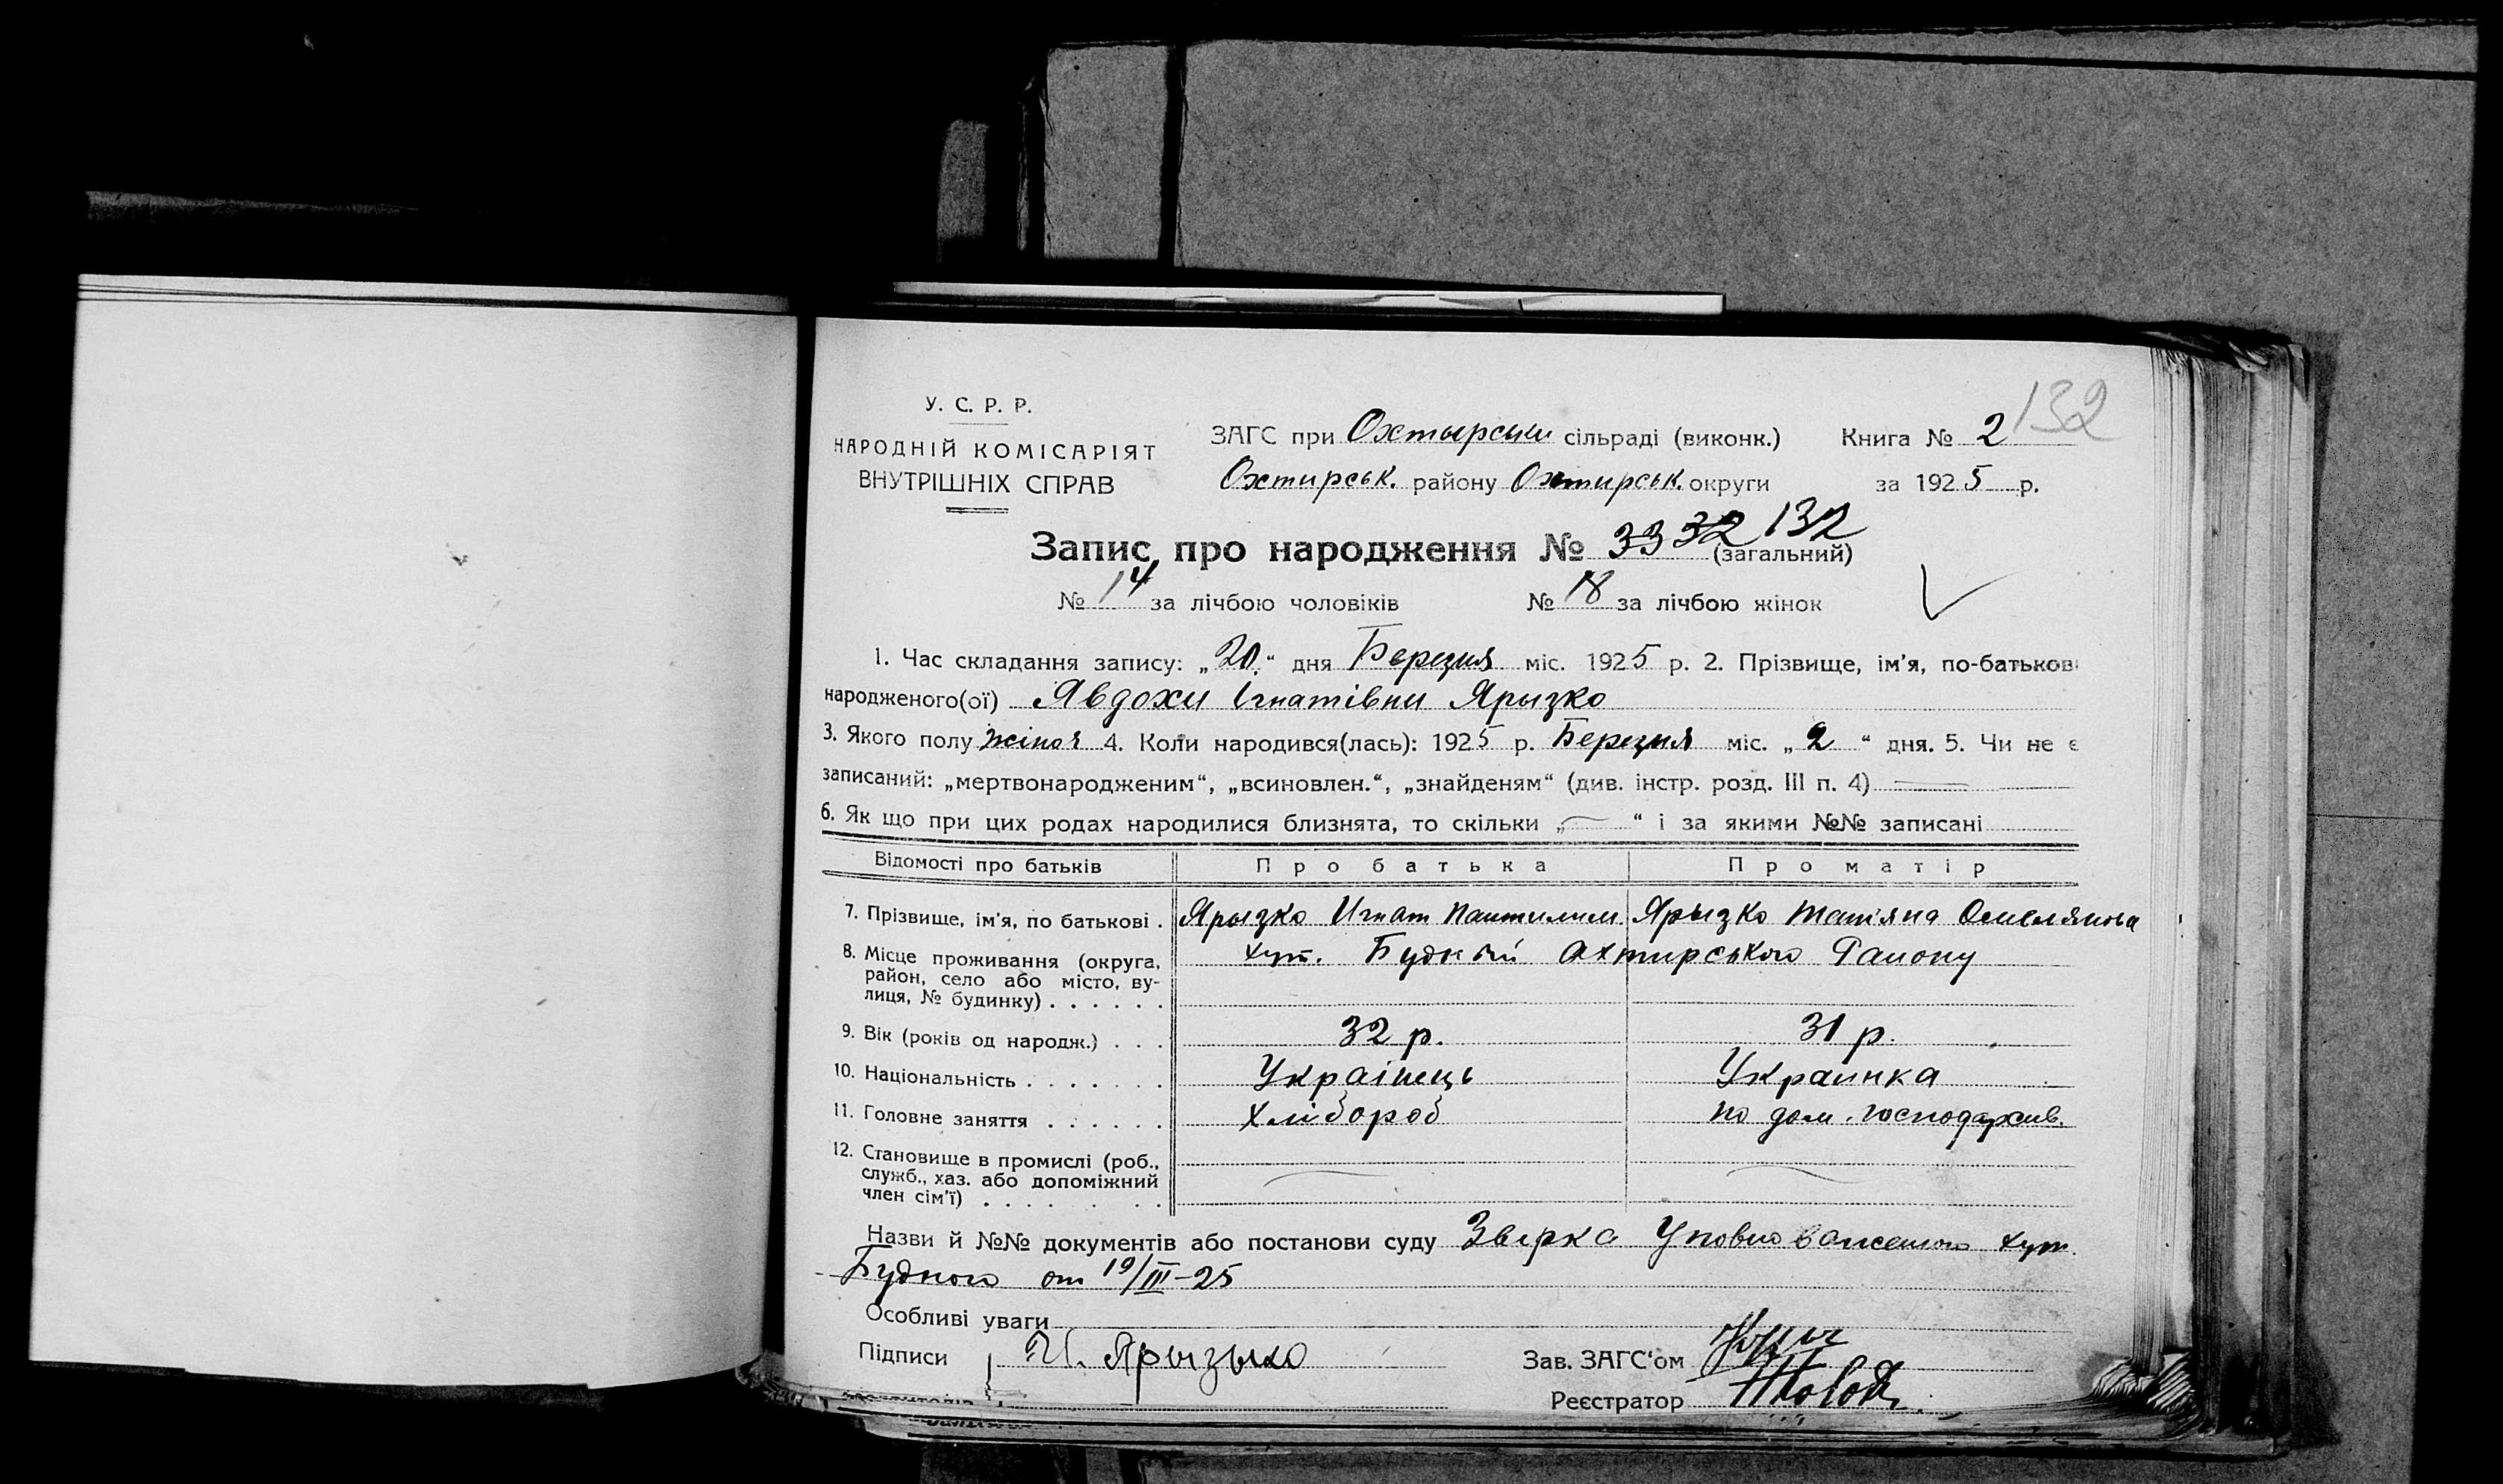 132
У. С. Р. Р.
НАРОДНІЙ КОМІСАРІЯТ
ВНУТРІШНІХ СПРАВ
ЗАГС при Охтырськи сільраді (виконк.) Книга № 2
Охтирськ. району Охтирськ. округи за 1925 р.
Запис про народження № 33 32 132
(загальний)
№ 14 за лічбою чоловіків № 18 за лічбою жінок
1. Час складання запису: „20.“ дня Березня міс. 1925 р. 2. Прізвище, ім’я, по-батькові
народженого(ої) Явдохи Ігнатівни Ярызко
3. Якого полу жіноч 4. Коли народився(лась): 1925 р. Березня міс. „2“ дня. 5. Чи не є
записаний: „мертвонародженим“, „всиновлен.“, „знайденям“ (див. інстр. розд. III п. 4)
6. Як що при цих родах народилися близнята, то скільки „ “ і за якими №№ записані
Відомості про батьків Про батька Про матір
7. Прізвище, ім’я, по батькові . Ярызко Игнат Ярызко Татіяна Омелянова
8. Місце проживання (округа, район, село або місто, вулиця, № будинку) . . . . . . хут. Будний Ахтирського Району
9. Вік (років од народж.) . . . 32 р. 31 р.
10. Національність . . . . . . . Украінець Украинка
11. Головне заняття . . . . . . хлібороб по дом. господарств.
12. Становище в промислі (роб.,
служб., хаз. або допоміжний
член сім’ї) . . . . . . .
Назви й №№ документів або постанови суду Звірка Уповноваженого хут.
Будного от 19/III-25
Особливі уваги
Підписи И. Ярызько Зав. ЗАГС‘ом
Реєстратор